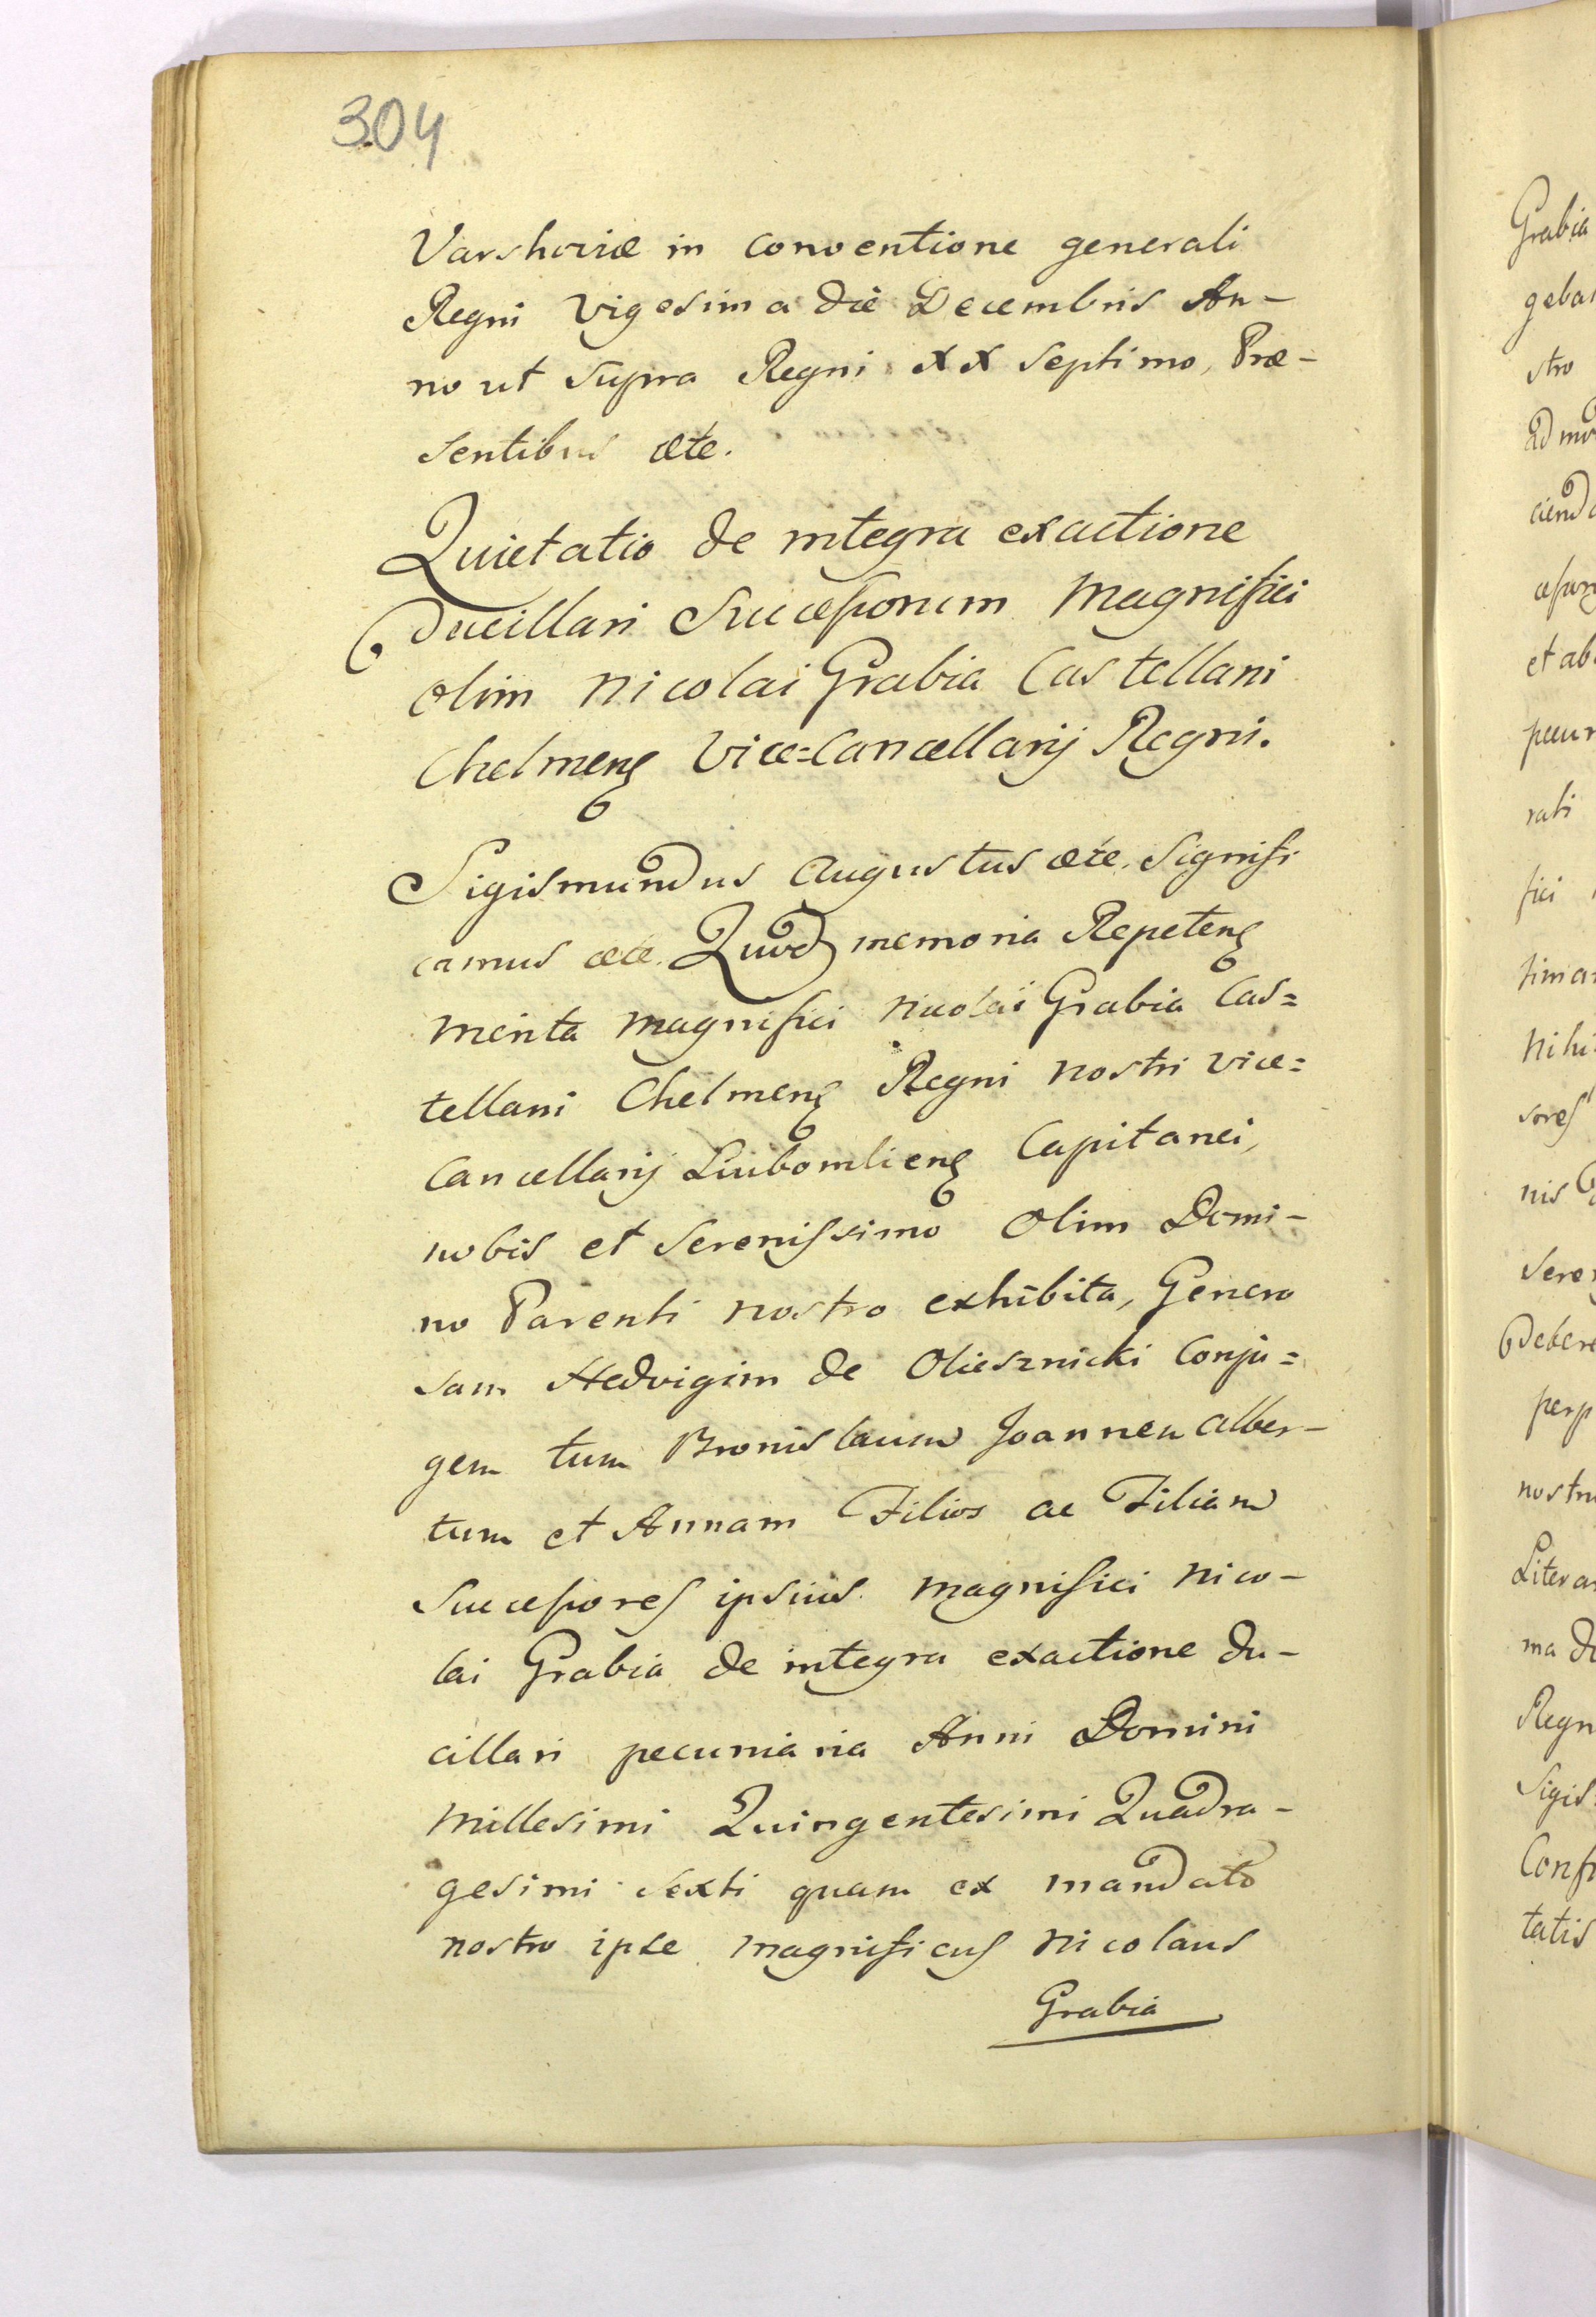 304
Varshoviæ in conventione generali
Regni vigesima die Decembris An-
no ut supra Regni XX septimo, Præ-
sentibus etc.
Quietatio de integra exactione
Ducillari Successorum Magnifici
olim Nicolai Grabia Castellani
Chelmens Vice=Cancellarij Regni.
Sigismundus Augustus etc. Signifi
camus etc. Quod memoria Repetens
menta Magnifici Nicolai Grabia Cas=
tellani Chelmens Regni nostri vice=
Cancellarij Liubomliens Capitanei,
nobis et Serenissimo Olim Domi-
no Parenti nostro exhibita, Genero
sam Hedvigim de Oliesznicki Conju=
gem tum Bronislaum Joannem Alber-
tum et Annam Filios ac Filiam
Successores ipsius Magnifici Nico-
lai Grabia de integra exactione du-
cillari pecuniaria Anni Domini
Millesimi Quingentesimi Quadra-
gesimi sexti quam ex mandato
nostro ipse Magnificus Nicolaus
Grabia
Grabia
stro
et ab
rati
fici
nis
perp
ma
tatis